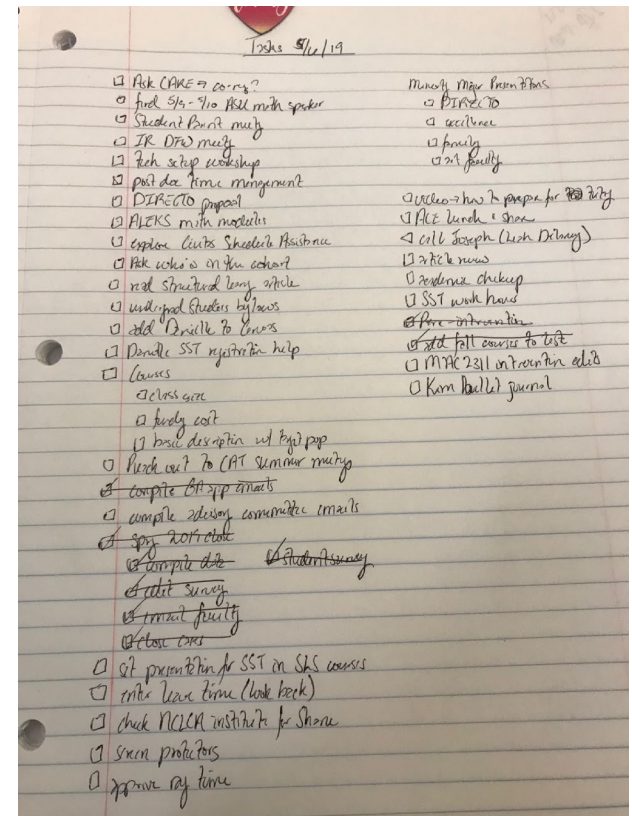 Tasks 5/6/19
Ask CARE → co-req?
find 5/9 - 5/10 ASU math speaker
Student Parent meeting
IR DFW meeting
tech setup workshop
post doc time mangement
DIRECTO proposal
ALEKS math modules
explore Schedule Assistance
Ask who's in the cohort
read structural article
undergrad Studies bylaws
add Danielle to
Danielle SST registration help
Courses
class size
cost
basic description w/ target pop
Reach out to CAT summer meetup
compile GA app emails
compile advisory committee emails
spg 2019 close
compile data
student survey
edit survey
email faculty
close
set presentation for SST in SLS courses
enter leave time (look back)
check NCLCA institute for Shane
screen protectors
approve time
Minority Major Presentations
DIRECTO
excellence
family
faculty
video → how to prepare for
ACE lunch & share
call Joseph (Leah)
article review
academic checkup
SST work hours
add fall courses to list
MAC 2311 intervention edits
Kam bullet journal